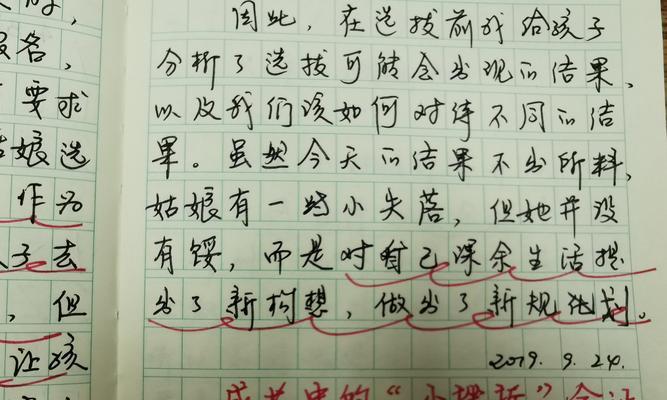 报名，
要求
姑娘选
作为
子去
，但
让孩
因此，在选拔前我给孩子
分析了选拔可能会出现的结果，
以及我们该如何对待不同的结
果。虽然今天的结果不出所料，
姑娘有一些小失落，但她并没
有馁，而是对自己课余生活提
出了新构想，做出了新规划。
2019.9.24.